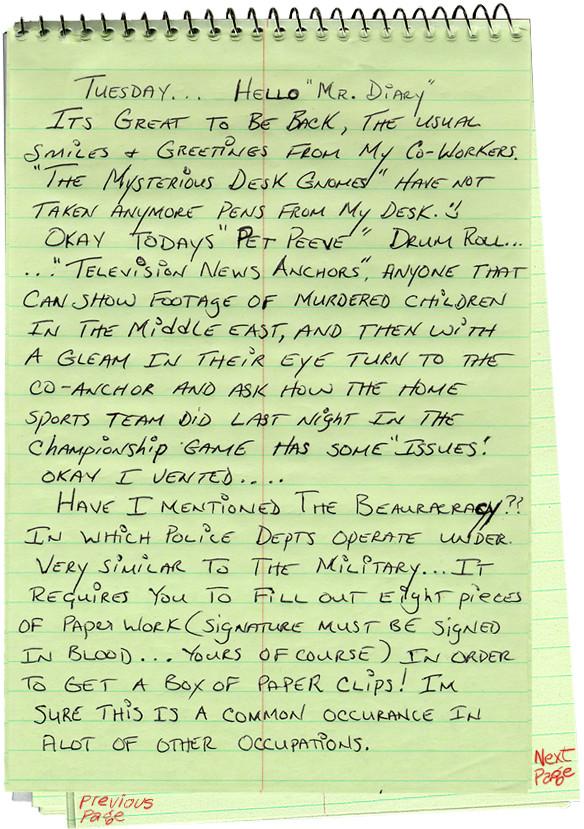 Tuesday... Hello "Mr. Diary"
Its Great to Be Back, The usual
Smiles & Greetings From My Co-Workers.
"The Mysterious Desk Gnomes" Have not
Taken Anymore Pens From My Desk.
Okay Todays "Pet Peeve" Drum Roll...
..."Television News Anchors", Anyone that
can show footage of murdered children
in the Middle East, and then with
a gleam in their eye turn to the
co-anchor and ask how the home
sports team did last night in the
Championship game has some "Issues!
Okay I vented....
Have I mentioned The Beauracracy??
In which Police Depts operate under.
Very similar to The Military... It
Requires You to Fill out eight pieces
of Paper Work (signature must be signed
in Blood... yours of course) in order
to get a Box of paper clips! Im
Sure this is a common occurance in
Alot of other occupations.
Next
Page
Previous
Page